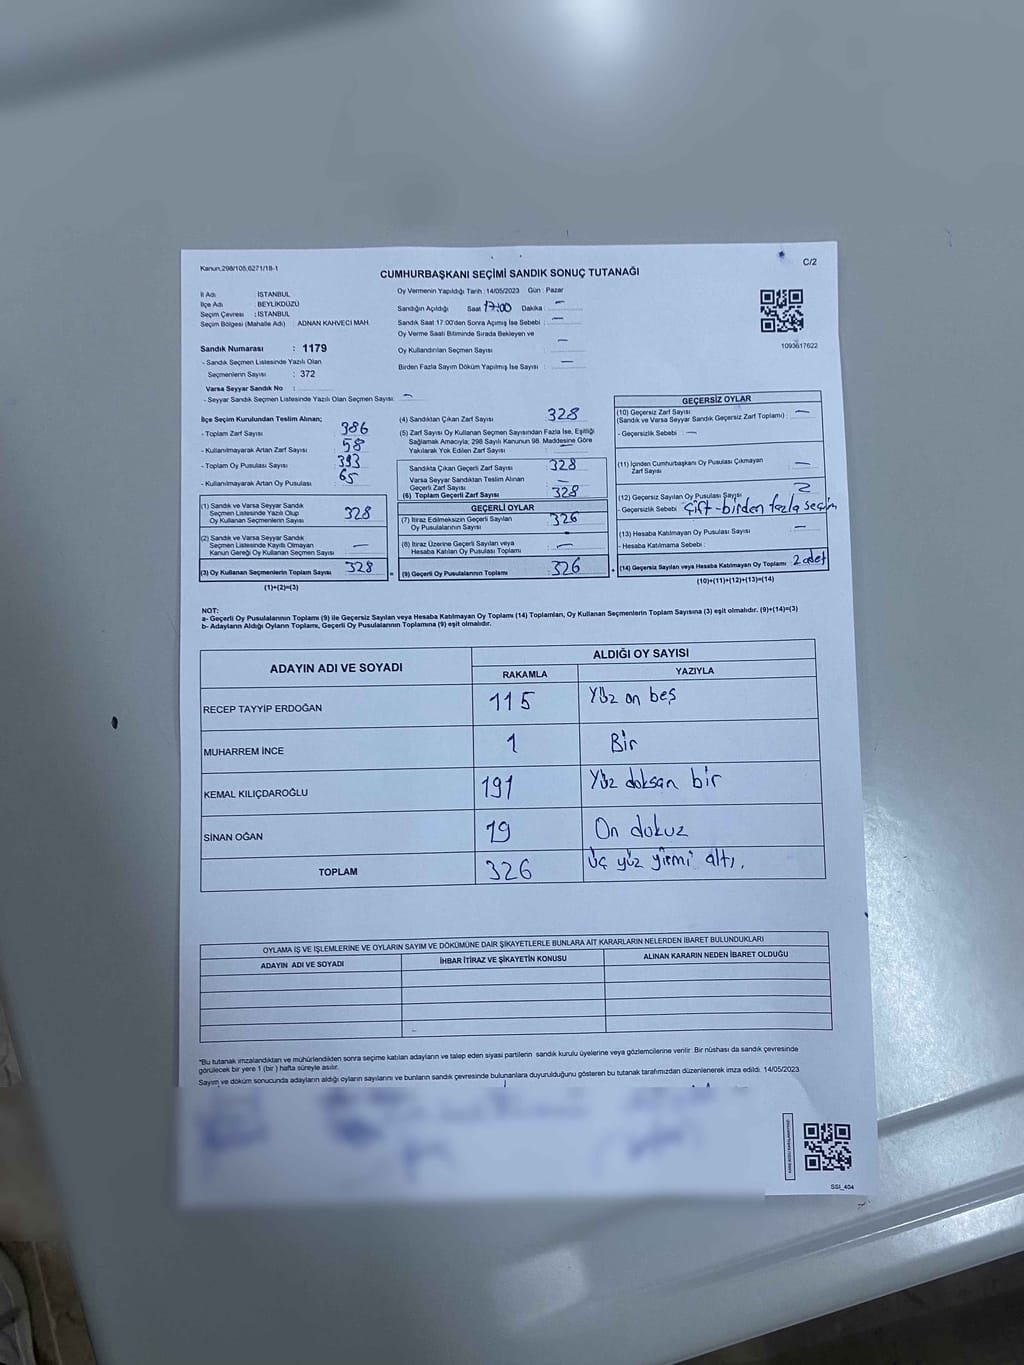 Kanun,298/105,6271/18-1
C/2
CUMHURBAŞKANI SEÇİMİ SANDIK SONUÇ TUTANAĞI
İl Adı : İSTANBUL
İlçe Adı : BEYLİKDÜZÜ
Seçim Çevresi : İSTANBUL
Seçim Bölgesi (Mahalle Adı) : ADNAN KAHVECİ MAH.
Sandık Numarası : 1179
- Sandık Seçmen Listesinde Yazılı Olan
Seçmenlerin Sayısı : 372
Varsa Seyyar Sandık No :
- Seyyar Sandık Seçmen Listesinde Yazılı Olan Seçmen Sayısı: —
Oy Vermenin Yapıldığı Tarih : 14/05/2023 Gün : Pazar
Sandığın Açıldığı Saat 17:00 Dakika : —
Sandık Saat 17:00'den Sonra Açımış İse Sebebi : —
Oy Verme Saati Bitiminde Sırada Bekleyen ve
Oy Kullandırılan Seçmen Sayısı : —
Birden Fazla Sayım Döküm Yapılmış İse Sayısı : —
1093617622
İlçe Seçim Kurulundan Teslim Alınan;
- Toplam Zarf Sayısı : 386
- Kullanılmayarak Artan Zarf Sayısı : 58
- Toplam Oy Pusulası Sayısı : 393
- Kullanılmayarak Artan Oy Pusulası : 65
(1) Sandık ve Varsa Seyyar Sandık
Seçmen Listesinde Yazılı Olup
Oy Kullanan Seçmenlerin Sayısı 328
(2) Sandık ve Varsa Seyyar Sandık
Seçmen Listesinde Kayıtlı Olmayan
Kanun Gereği Oy Kullanan Seçmen Sayısı —
(3) Oy Kullanan Seçmenlerin Toplam Sayısı 328
(1)+(2)=(3)
=
(4) Sandıktan Çıkan Zarf Sayısı 328
(5) Zarf Sayısı Oy Kullanan Seçmen Sayısından Fazla İse, Eşitliği
Sağlamak Amacıyla, 298 Sayılı Kanunun 98. Maddesine Göre
Yakılarak Yok Edilen Zarf Sayısı : —
Sandıkta Çıkan Geçerli Zarf Sayısı 328
Varsa Seyyar Sandıktan Teslim Alınan
Geçerli Zarf Sayısı —
(6) Toplam Geçerli Zarf Sayısı 328
GEÇERLİ OYLAR
(7) İtiraz Edilmeksizin Geçerli Sayılan
Oy Pusulalarının Sayısı 326
(8) İtiraz Üzerine Geçerli Sayılan veya
Hesaba Katılan Oy Pusulası Toplamı —
(9) Geçerli Oy Pusulalarının Toplamı 326
+
GEÇERSİZ OYLAR
(10) Geçersiz Zarf Sayısı
(Sandık ve Varsa Seyyar Sandık Geçersiz Zarf Toplamı) : —
- Geçersizlik Sebebi : —
(11) İçinden Cumhurbaşkanı Oy Pusulası Çıkmayan
Zarf Sayısı —
(12) Geçersiz Sayılan Oy Pusulası Sayısı 2
- Geçersizlik Sebebi Çift-birden fazla seçim
(13) Hesaba Katılmayan Oy Pusulası Sayısı —
- Hesaba Katılmama Sebebi :
(14) Geçersiz Sayılan veya Hesaba Katılmayan Oy Toplamı 2 adet
(10)+(11)+(12)+(13)=(14)
NOT:
a- Geçerli Oy Pusulalarının Toplamı (9) ile Geçersiz Sayılan veya Hesaba Katılmayan Oy Toplamı (14) Toplamları, Oy Kullanan Seçmenlerin Toplam Sayısına (3) eşit olmalıdır. (9)+(14)=(3)
b- Adayların Aldığı Oyların Toplamı, Geçerli Oy Pusulalarının Toplamına (9) eşit olmalıdır.
ADAYIN ADI VE SOYADI
ALDIĞI OY SAYISI
RAKAMLA YAZIYLA
RECEP TAYYİP ERDOĞAN 115 Yüz on beş
MUHARREM İNCE 1 Bir
KEMAL KILIÇDAROĞLU 191 Yüz doksan bir
SİNAN OĞAN 19 On dokuz
TOPLAM 326 Üç yüz yirmi altı.
OYLAMA İŞ VE İŞLEMLERİNE VE OYLARIN SAYIM VE DÖKÜMÜNE DAİR ŞİKAYETLERLE BUNLARA AİT KARARLARIN NELERDEN İBARET BULUNDUKLARI
ADAYIN ADI VE SOYADI İHBAR İTİRAZ VE ŞİKAYETİN KONUSU ALINAN KARARIN NEDEN İBARET OLDUĞU
*Bu tutanak imzalandıktan ve mühürlendikten sonra seçime katılan adayların ve talep eden siyasi partilerin sandık kurulu üyelerine veya gözlemcilerine verilir. Bir nüshası da sandık çevresinde
görülecek bir yere 1 (bir ) hafta süreyle asılır.
Sayım ve döküm sonucunda adayların aldığı oyların sayılarını ve bunların sandık çevresinde bulunanlara duyurulduğunu gösteren bu tutanak tarafımızdan düzenlenerek imza edildi. 14/05/2023
SSI_404